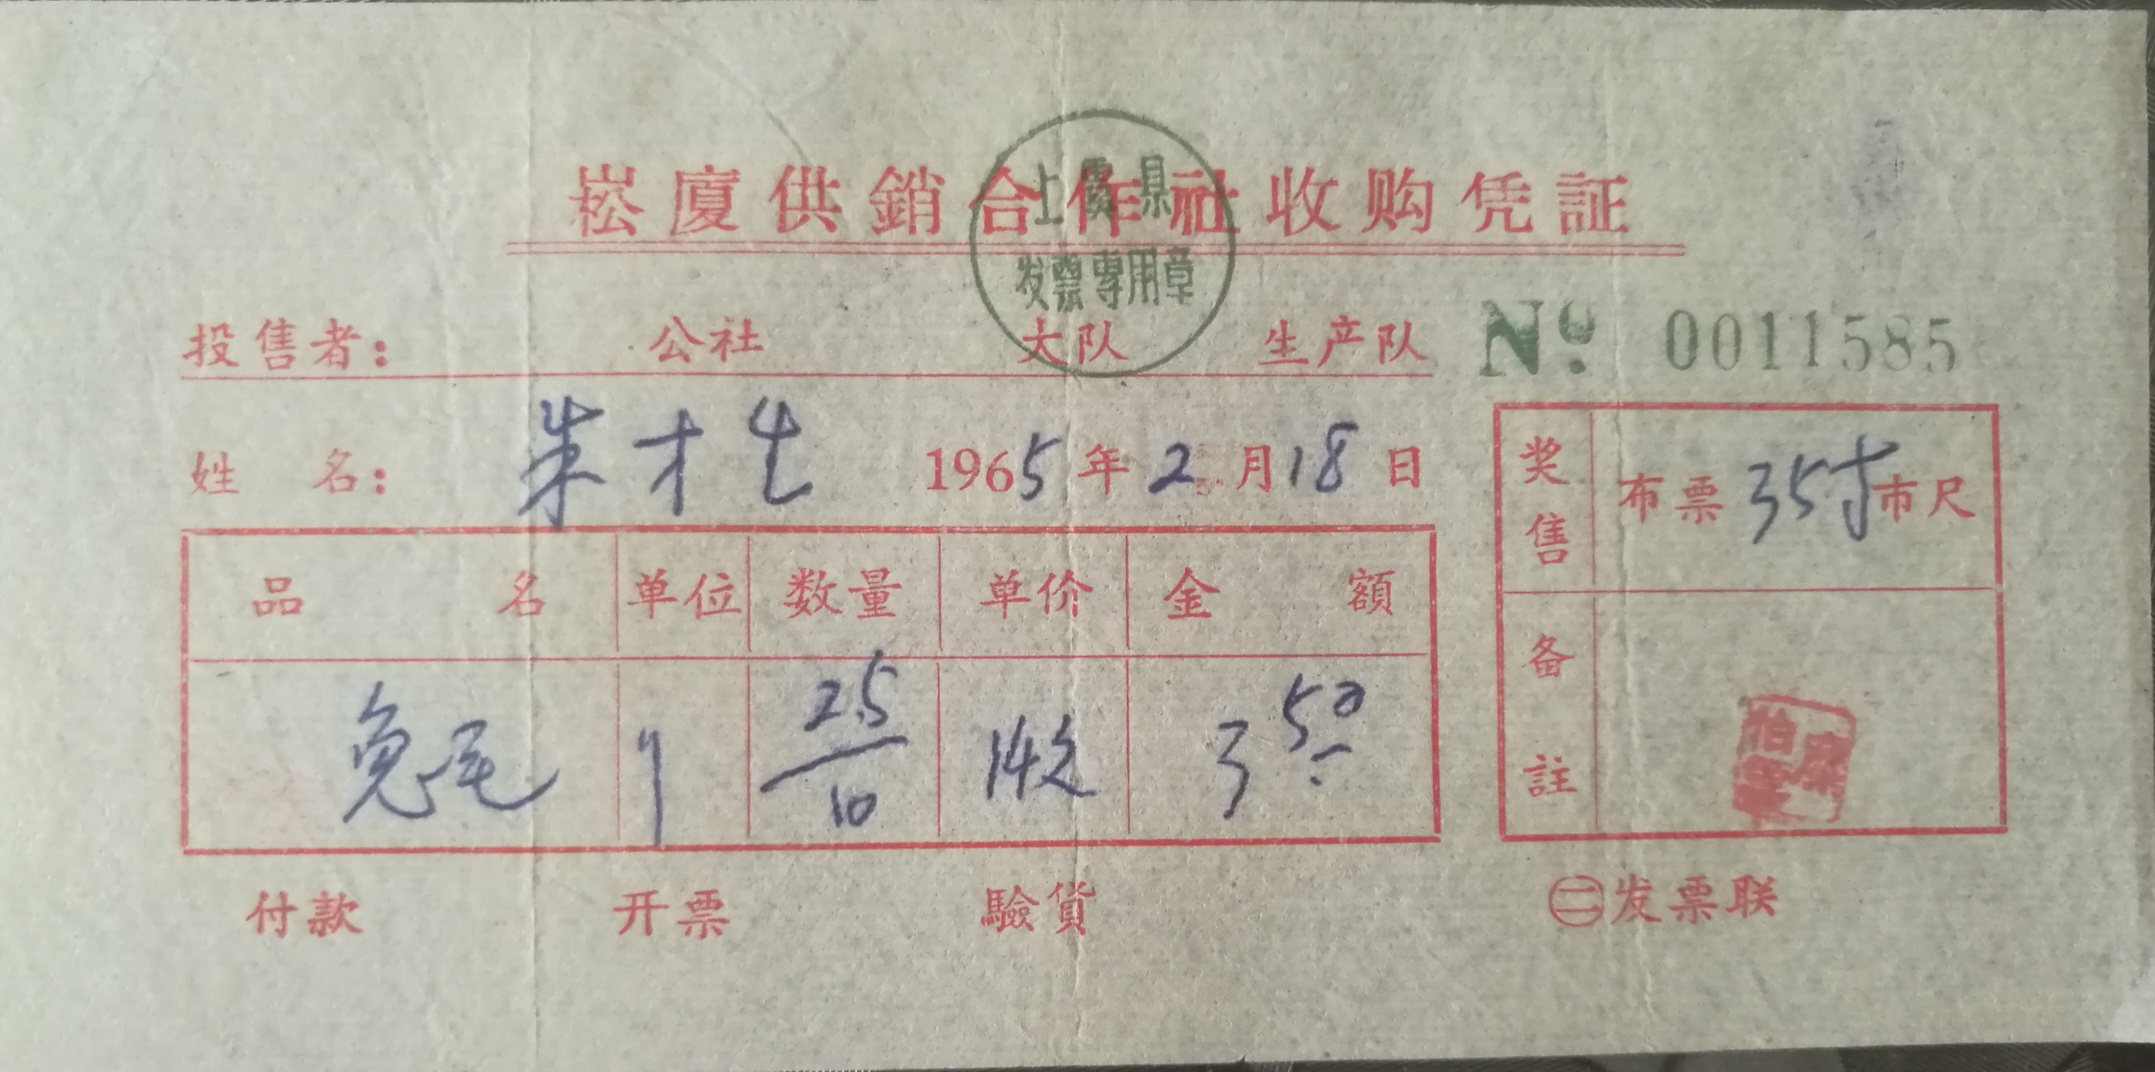 崧廈供銷合作社收购凭証
上虞县
发票專用章
投售者： 公社 大队 生产队 № 0011585
姓 名： 朱才生 1965年2月18日
奖售 布票 35寸 市尺
品 名 单位 数量 单价 金 额
兔毛 25/10 14元 3 50
备註
付款 开票 驗貨 ㊁发票联